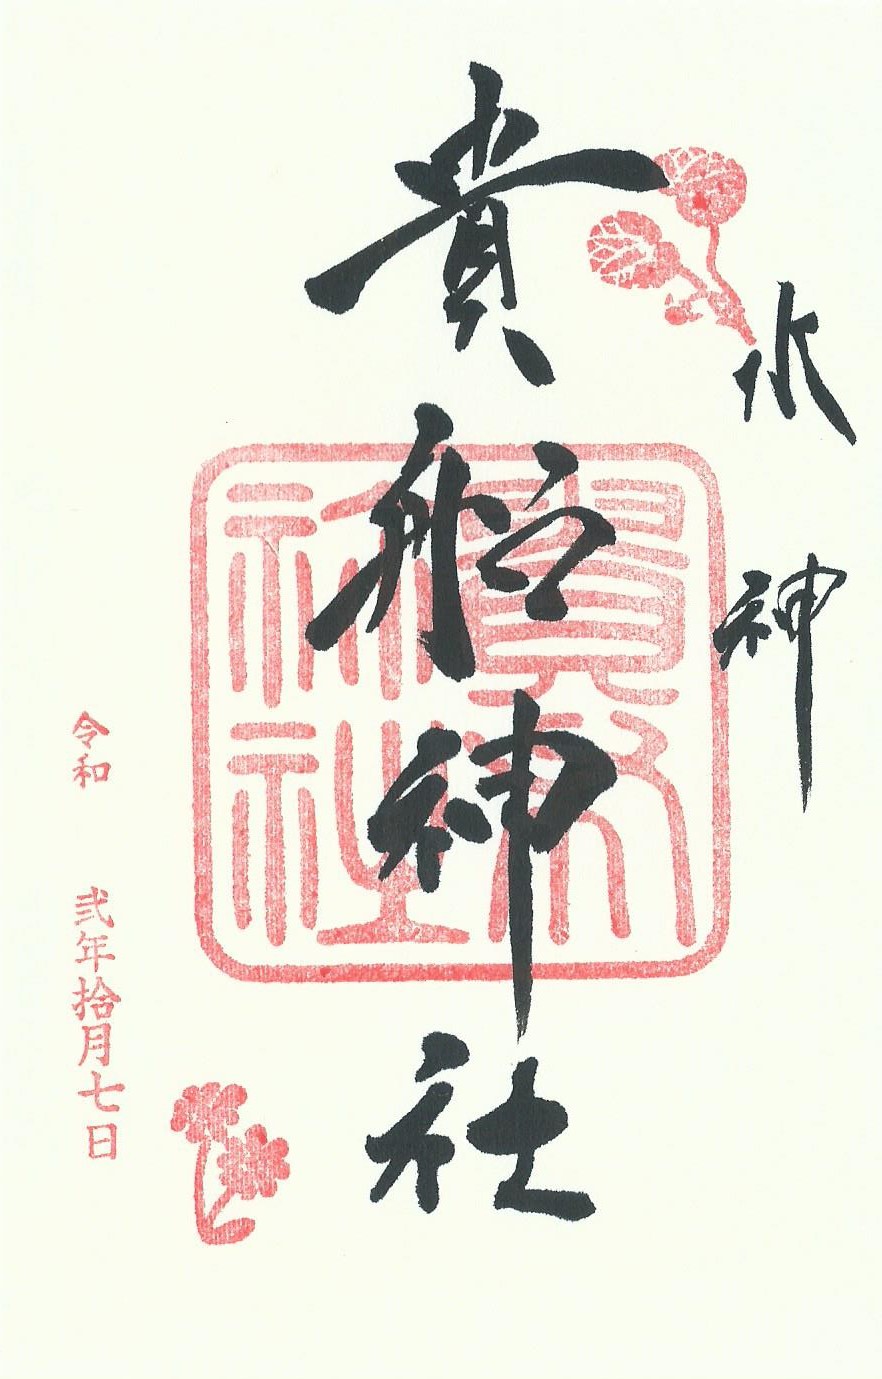 水神
貴船神社
貴布祢神社
令和弐年拾月七日